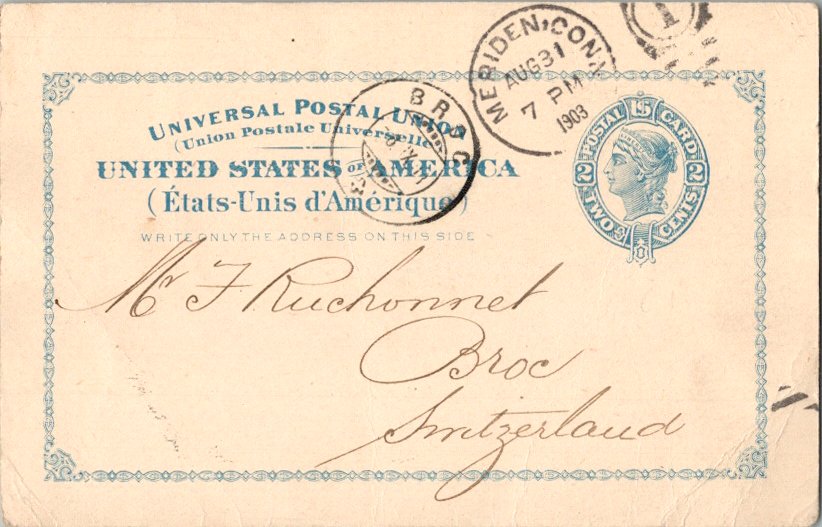 MERIDEN, CONN.
AUG 31
7 PM
1903
1
BROC
UNIVERSAL POSTAL UNION
(Union Postale Universelle)
UNITED STATES OF AMERICA
(États-Unis d'Amérique)
WRITE ONLY THE ADDRESS ON THIS SIDE
POSTAL CARD
2 2
TWO CENTS
Mr F Ruchonnet
Broc
Switzerland